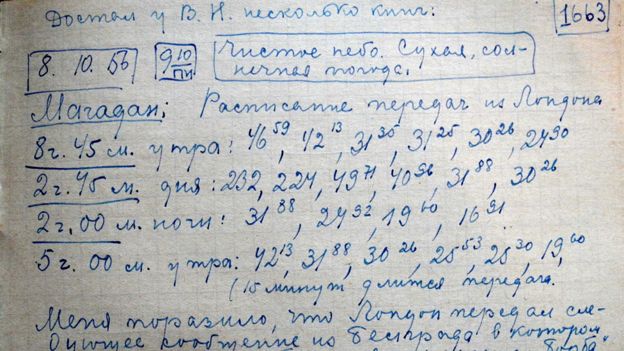 Достал у В. Н. несколько книг:
1663
8. 10. 56
9 10/пн
Чистое небо. Сухая, сол-
нечная погода.
Магадан; Расписание передач из Лондона
8 г. 45 м. утра: 46 59, 42 13, 31 35, 31 25, 30 26, 24 90
2 г. 45 м. дня: 232, 224, 49 71, 40 96, 31 88, 30 26
2 г. 00 м. ночи: 31 88, 24 92, 19 60, 16 91
5 г. 00 м. утра: 42 13, 31 88, 30 26, 25 53, 25 30, 19 60
(15 минут длится передача.
Меня поразило, что Лондон передал сле-
дующее сообщение из Белграда в котором
"Борба"